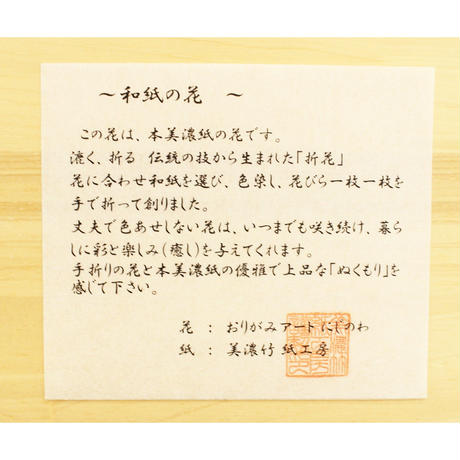 ～和紙の花　～
この花は、本美濃紙の花です。
漉く、折る 伝統の技から生まれた「折花」
花に合わせ和紙を選び、色染し、花びら一枚一枚を
手で折って創りました。
丈夫で色あせしない花は、いつまでも咲き続け、暮ら
しに彩と楽しみ(癒し)を与えてくれます。
手折りの花と本美濃紙の優雅で上品な「ぬくもり」を
感じて下さい。
花 ： おりがみアートにじのわ
紙 ： 美濃竹紙工房